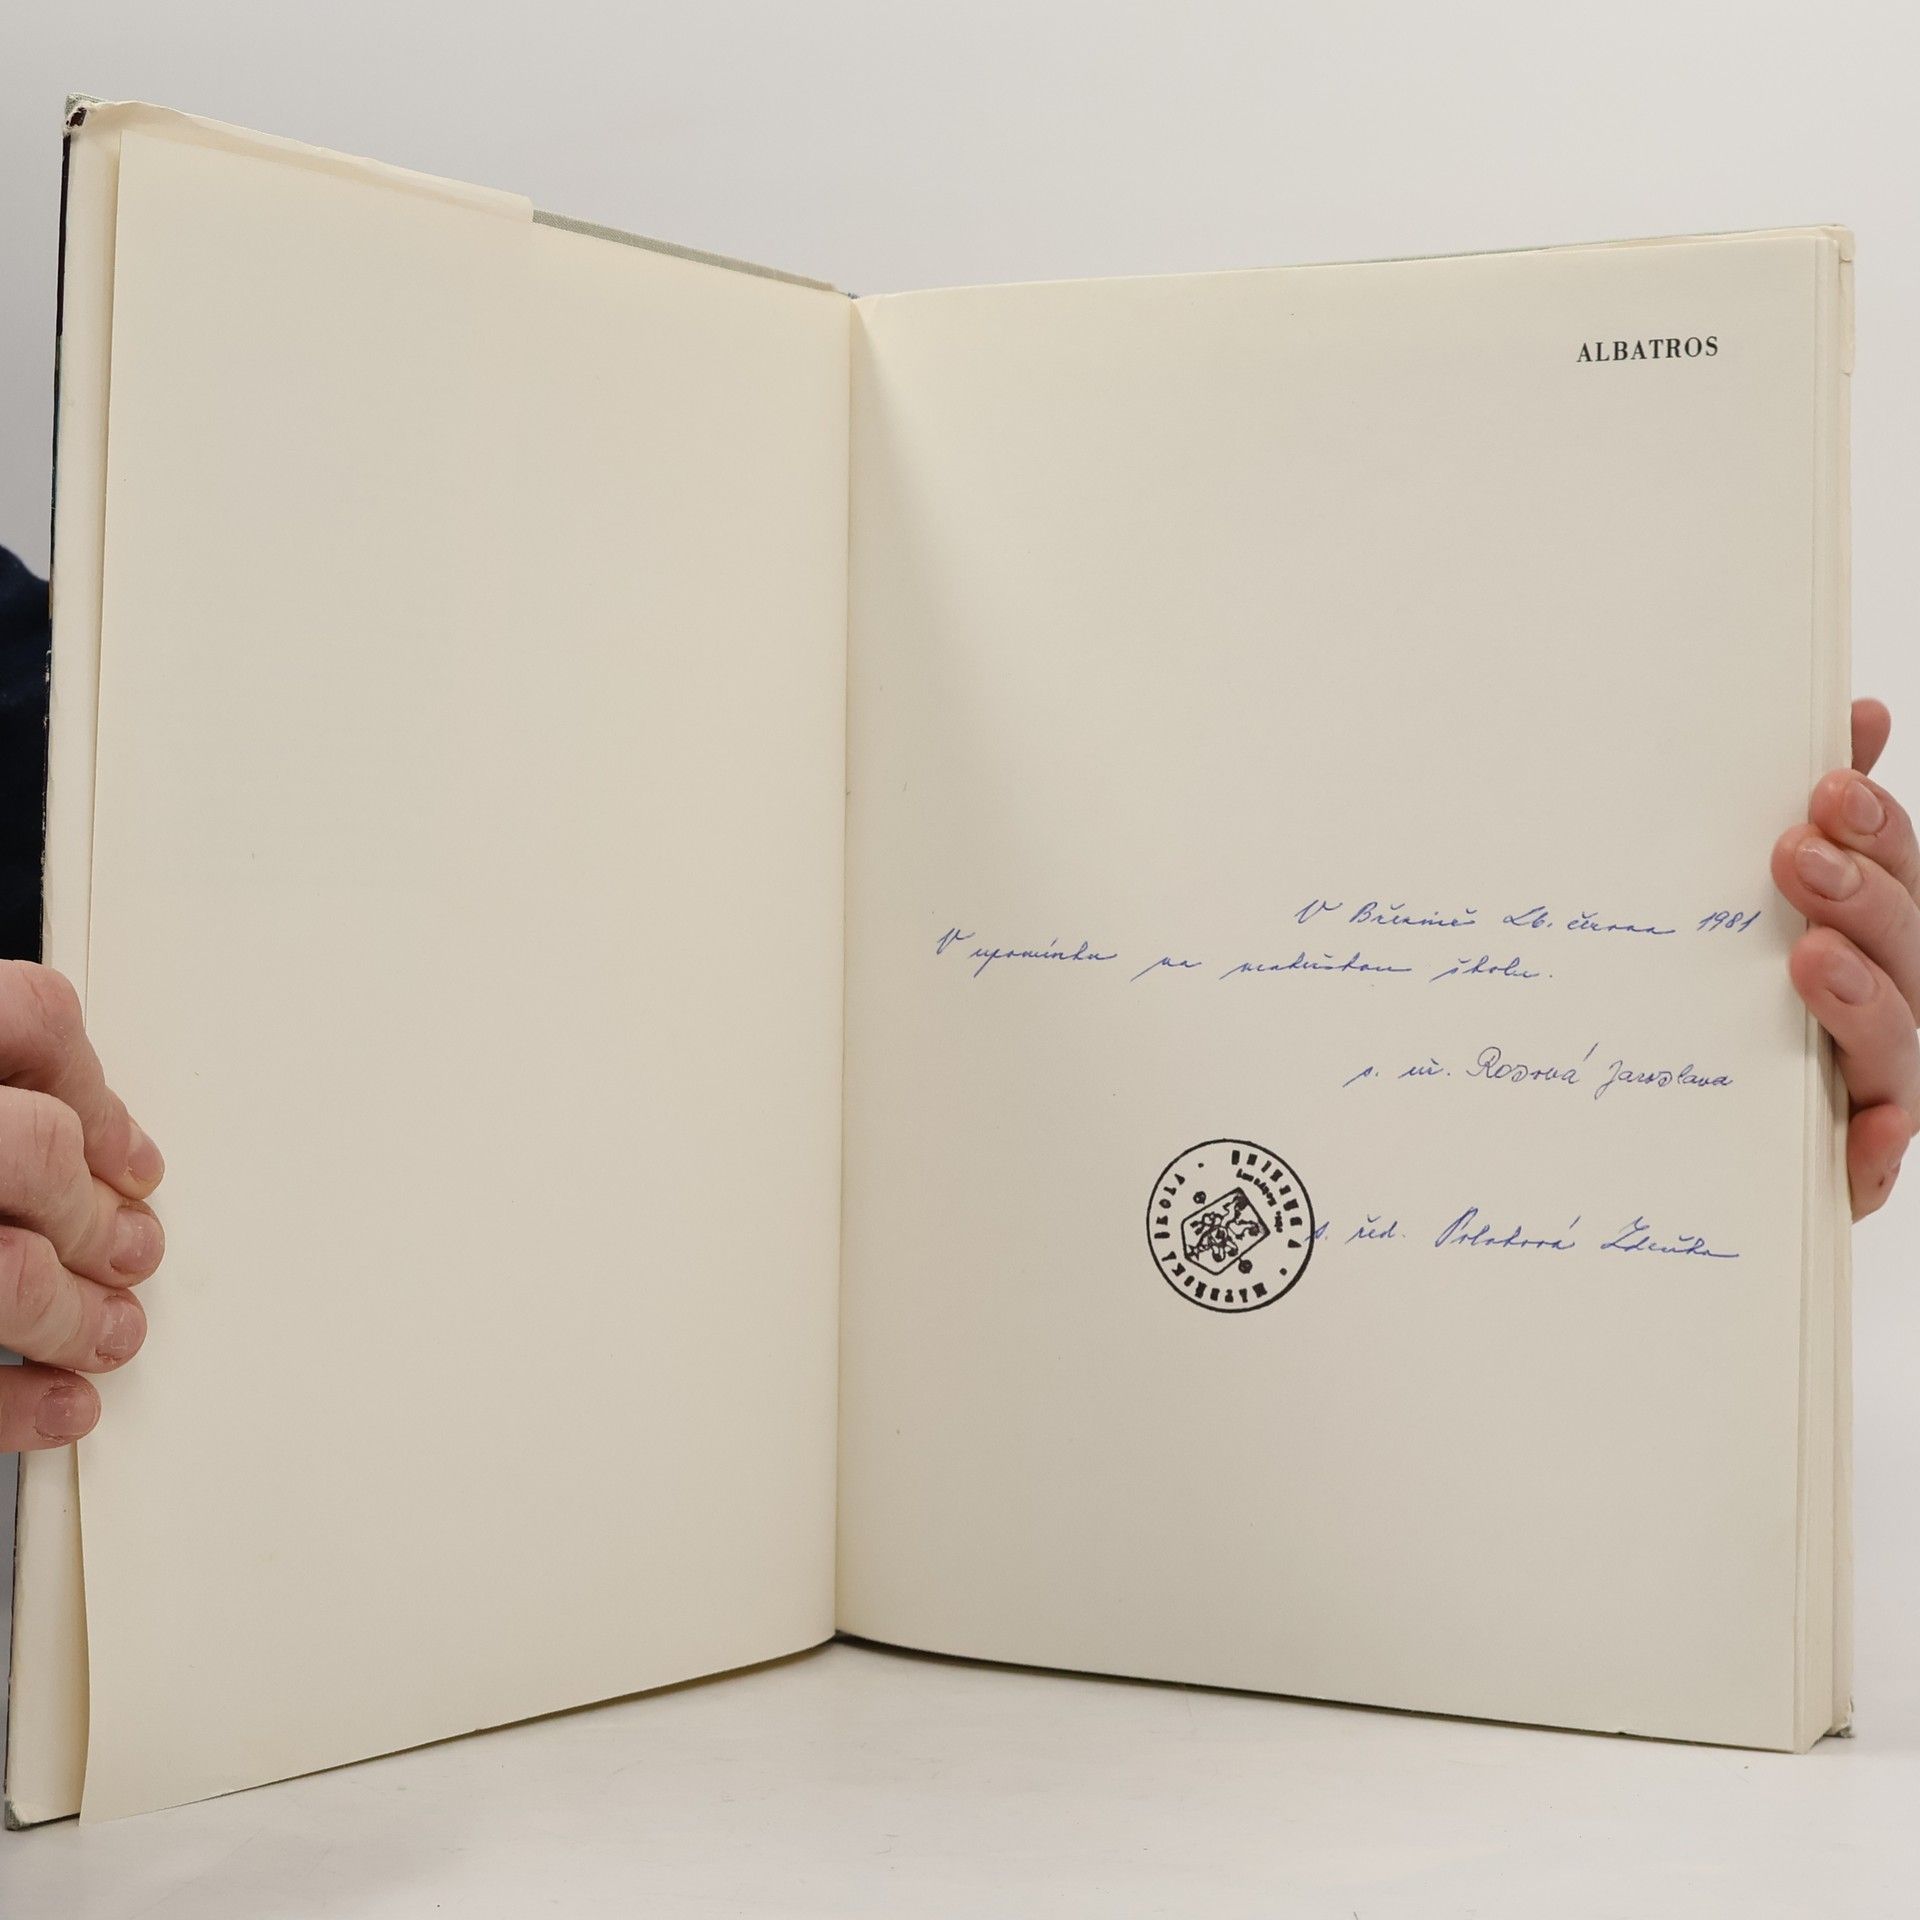 ALBATROS
V Březině 26. června 1981
V upomínku na mateřskou školu.
s. uč. Rosová Jaroslava
s. řed. Poláková Zdeňka
MATEŘSKÁ ŠKOLA